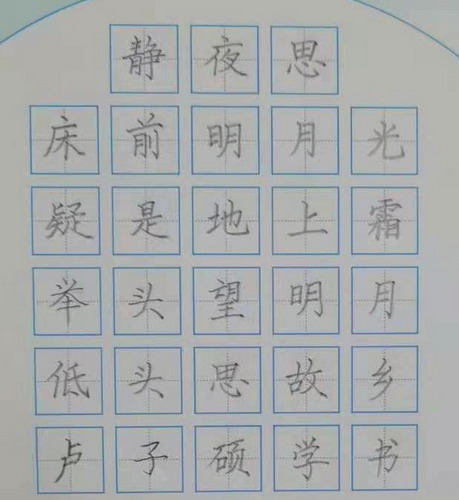 静夜思
床前明月光
疑是地上霜
举头望明月
低头思故乡
卢子硕学书